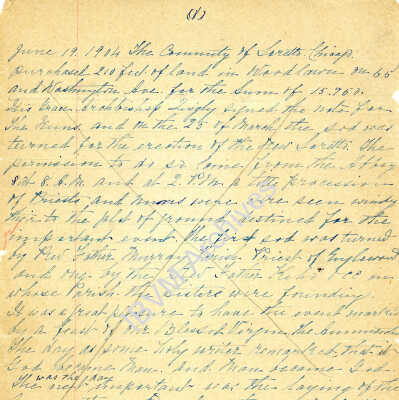 (1)
June 19. 1904 The Community of Loretto Chicago
purchased 210 feet of land in Woodlawn on 65
and Washington Ave. for the sum of 15.750.
His Grace Archbishop Quigly signed the note for
The Nuns, and on the 25 of March, the sod was
turned for the erection of the New Loretto. The
permission to do so came from the Abbey
at 8 A.M. and at 2. P.M. the procession
of Priests and Nuns were seen winding
their to the plot of ground destined for the
important event. The first sod was turned
by Rev. Father Murray Parish Priest of Englewood
and one by the Father in
whose Parish the sisters were founding.
It was a great pleasure to have the event marked
by a feast of Our Blessed Virgin, the Annunciation
The day as some holy writer remarked, that
God became Man, and Man became God.
It was the day
The next important was the laying of the